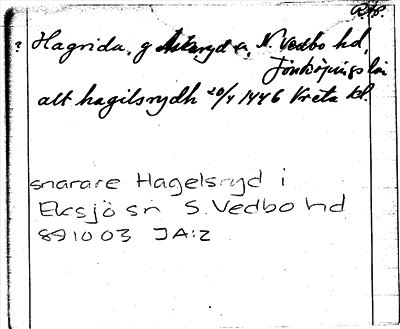 R.
? Hagrida, g a, N. Vedbo hd,
Jönköpings län
att hagilsrydh 20/4 1446 Vreta kl.
snarare Hagelsryd i
Eksjö sn S. Vedbo hd
891003 JA:2